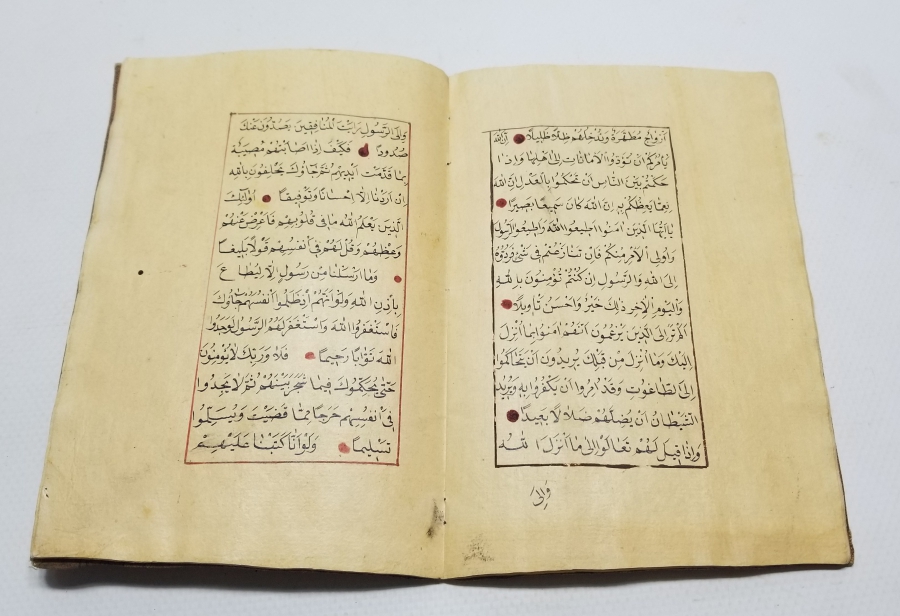 أَزْوَاجٌ مُطَهَّرَةٌ وَنُدْخِلُهُمْ ظِلًّا ظَلِيلًا إِنَّ اللّٰهَ
يَأْمُرُكُمْ أَنْ تُؤَدُّوا الْأَمَانَاتِ إِلَى أَهْلِهَا وَإِذَا
حَكَمْتُمْ بَيْنَ النَّاسِ أَنْ تَحْكُمُوا بِالْعَدْلِ إِنَّ اللّٰهَ
نِعِمَّا يَعِظُكُمْ بِهِ إِنَّ اللّٰهَ كَانَ سَمِيعًا بَصِيرًا
يَا أَيُّهَا الَّذِينَ آمَنُوا أَطِيعُوا اللّٰهَ وَأَطِيعُوا الرَّسُولَ
وَأُولِي الْأَمْرِ مِنْكُمْ فَإِنْ تَنَازَعْتُمْ فِي شَيْءٍ فَرُدُّوهُ
إِلَى اللّٰهِ وَالرَّسُولِ إِنْ كُنْتُمْ تُؤْمِنُونَ بِاللّٰهِ
وَالْيَوْمِ الْآخِرِ ذٰلِكَ خَيْرٌ وَأَحْسَنُ تَأْوِيلًا
أَلَمْ تَرَ إِلَى الَّذِينَ يَزْعُمُونَ أَنَّهُمْ آمَنُوا بِمَا أُنْزِلَ
إِلَيْكَ وَمَا أُنْزِلَ مِنْ قَبْلِكَ يُرِيدُونَ أَنْ يَتَحَاكَمُوا
إِلَى الطَّاغُوتِ وَقَدْ أُمِرُوا أَنْ يَكْفُرُوا بِهِ وَيُرِيدُ
الشَّيْطَانُ أَنْ يُضِلَّهُمْ ضَلَالًا بَعِيدًا
وَإِذَا قِيلَ لَهُمْ تَعَالَوْا إِلَى مَا أَنْزَلَ اللّٰهُ
وَإِلَى
وَإِلَى الرَّسُولِ رَأَيْتَ الْمُنَافِقِينَ يَصُدُّونَ عَنْكَ
صُدُودًا فَكَيْفَ إِذَا أَصَابَتْهُمْ مُصِيبَةٌ
بِمَا قَدَّمَتْ أَيْدِيهِمْ ثُمَّ جَاؤُكَ يَحْلِفُونَ بِاللّٰهِ
إِنْ أَرَدْنَا إِلَّا إِحْسَانًا وَتَوْفِيقًا أُولٰئِكَ
الَّذِينَ يَعْلَمُ اللّٰهُ مَا فِي قُلُوبِهِمْ فَأَعْرِضْ عَنْهُمْ
وَعِظْهُمْ وَقُلْ لَهُمْ فِي أَنْفُسِهِمْ قَوْلًا بَلِيغًا
وَمَا أَرْسَلْنَا مِنْ رَسُولٍ إِلَّا لِيُطَاعَ
بِإِذْنِ اللّٰهِ وَلَوْ أَنَّهُمْ إِذْ ظَلَمُوا أَنْفُسَهُمْ جَاؤُكَ
فَاسْتَغْفَرُوا اللّٰهَ وَاسْتَغْفَرَ لَهُمُ الرَّسُولُ لَوَجَدُوا
اللّٰهَ تَوَّابًا رَحِيمًا فَلَا وَرَبِّكَ لَا يُؤْمِنُونَ
حَتَّى يُحَكِّمُوكَ فِيمَا شَجَرَ بَيْنَهُمْ ثُمَّ لَا يَجِدُوا
فِي أَنْفُسِهِمْ حَرَجًا مِمَّا قَضَيْتَ وَيُسَلِّمُوا
تَسْلِيمًا وَلَوْ أَنَّا كَتَبْنَا عَلَيْهِمْ